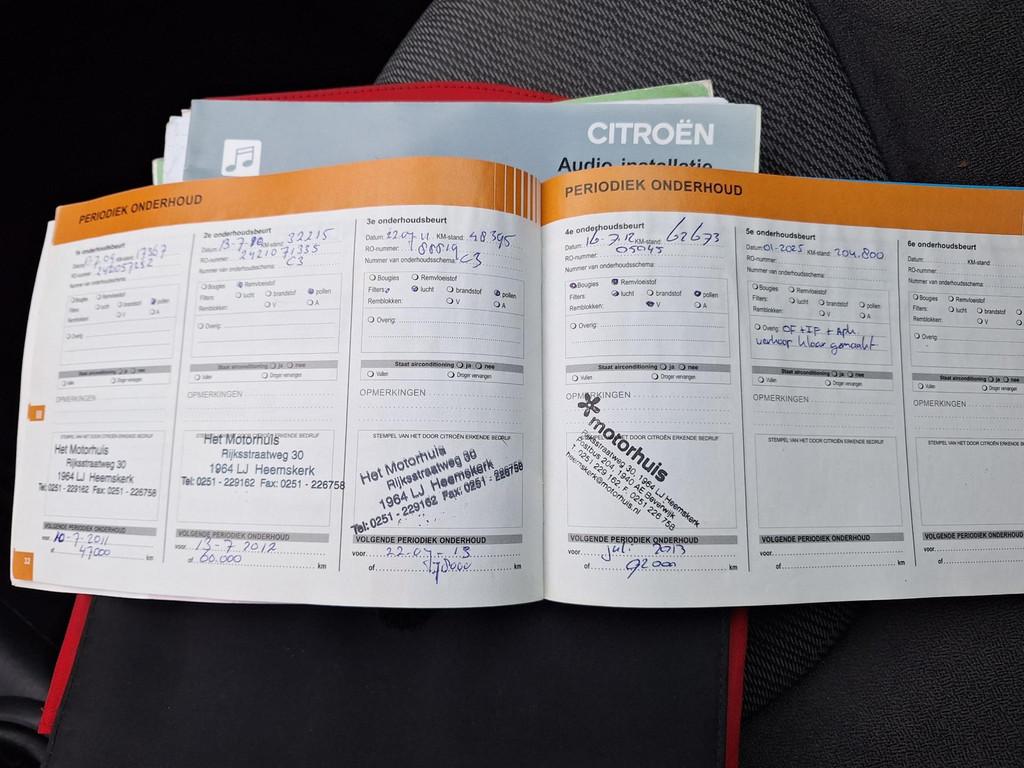 CITROËN
Audio-installatie
PERIODIEK ONDERHOUD
1e onderhoudsbeurt
Datum: KM-stand: 17367
RO-nummer:
Nummer van onderhoudsschema:
Bougies Remvloeistof
Filters: lucht brandstof pollen
Remblokken: V A
Overig:
Staat airconditioning ja nee
Vullen Droger vervangen
OPMERKINGEN
STEMPEL VAN HET DOOR CITROËN ERKENDE BEDRIJF
Het Motorhuis
Rijksstraatweg 30
1964 LJ Heemskerk
Tel: 0251 - 229162 Fax: 0251 - 226758
VOLGENDE PERIODIEK ONDERHOUD
voor 10-7-2011
of 47000 km
32
2e onderhoudsbeurt
Datum: 13-7-10 KM-stand: 32215
RO-nummer: 2421071335
Nummer van onderhoudsschema: C3
Bougies Remvloeistof
Filters: lucht brandstof pollen
Remblokken: V A
Overig:
Staat airconditioning ja nee
Vullen Droger vervangen
OPMERKINGEN
STEMPEL VAN HET DOOR CITROËN ERKENDE BEDRIJF
Het Motorhuis
Rijksstraatweg 30
1964 LJ Heemskerk
Tel: 0251 - 229162 Fax: 0251 - 226758
VOLGENDE PERIODIEK ONDERHOUD
voor 13-7-2012
of 60.000 km
3e onderhoudsbeurt
Datum: 22.07.11 KM-stand: 48395
RO-nummer:
Nummer van onderhoudsschema: C3
Bougies Remvloeistof
Filters: lucht brandstof pollen
Remblokken: V A
Overig:
Staat airconditioning ja nee
Vullen Droger vervangen
OPMERKINGEN
STEMPEL VAN HET DOOR CITROËN ERKENDE BEDRIJF
Het Motorhuis
Rijksstraatweg 30
1964 LJ Heemskerk
Tel: 0251 - 229162 Fax: 0251 - 226758
VOLGENDE PERIODIEK ONDERHOUD
voor 22.07-13
of 78000 km
PERIODIEK ONDERHOUD
4e onderhoudsbeurt
Datum: 16-7-12 KM-stand: 62673
RO-nummer: 05045
Nummer van onderhoudsschema:
Bougies Remvloeistof
Filters: lucht brandstof pollen
Remblokken: V A
Overig:
Staat airconditioning ja nee
Vullen Droger vervangen
OPMERKINGEN
STEMPEL VAN HET DOOR CITROËN ERKENDE BEDRIJF
motorhuis
Rijksstraatweg 30, 1964 LJ Heemskerk
Postbus 204, 1940 AE Beverwijk
T. 0251 229 162, F. 0251 226 758
heemskerk@motorhuis.nl
VOLGENDE PERIODIEK ONDERHOUD
voor juli 2013
of 92000 km
5e onderhoudsbeurt
Datum: 01-2025 KM-stand: 204.800
RO-nummer:
Nummer van onderhoudsschema:
Bougies Remvloeistof
Filters: lucht brandstof pollen
Remblokken: V A
Overig: OF + IF + Apk
verkoop klaar gemaakt
Staat airconditioning ja nee
Vullen Droger vervangen
OPMERKINGEN
STEMPEL VAN HET DOOR CITROËN ERKENDE BEDRIJF
VOLGENDE PERIODIEK ONDERHOUD
voor
of km
6e onderhoudsbeurt
Datum: KM-stand:
RO-nummer:
Nummer van onderhoudsschema:
Bougies Remvloeistof
Filters: lucht brandstof
Remblokken: V
Overig:
Staat airconditioning ja nee
Vullen Droger vervangen
OPMERKINGEN
STEMPEL VAN HET DOOR CITROËN ERKENDE
VOLGENDE PERIODIEK ONDERHOUD
voor
of